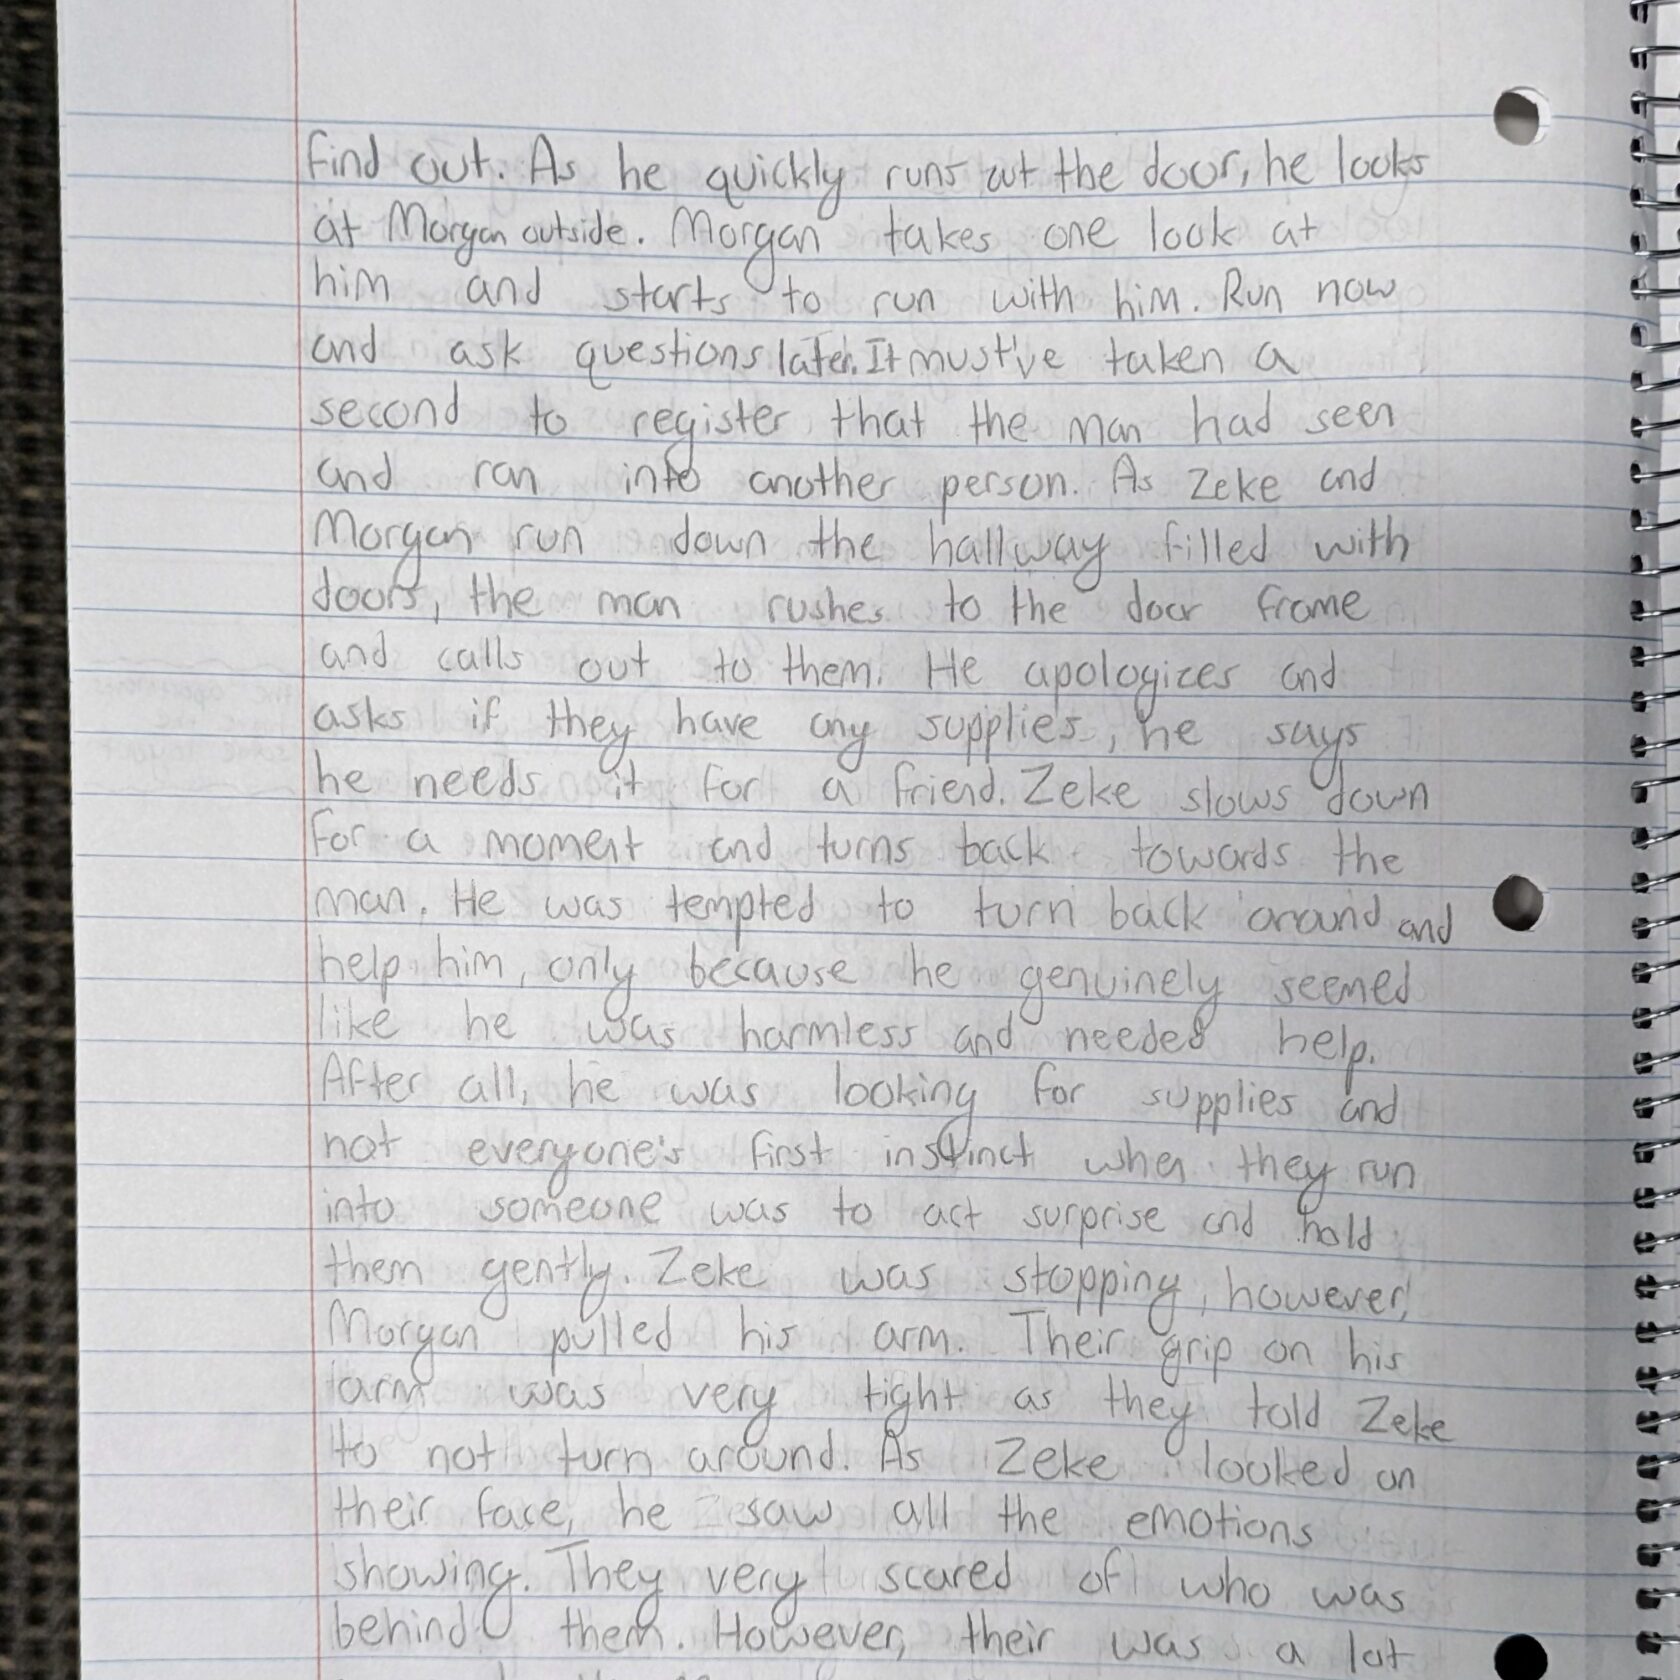 find out. As he quickly runs out the door, he looks
at Morgan outside. Morgan takes one look at
him and starts to run with him. Run now
and ask questions later. It must've taken a
second to register that the man had seen
and ran into another person. As Zeke and
Morgan run down the hallway filled with
doors, the man rushes to the door frame
and calls out to them. He apologizes and
asks if they have any supplies, he says
he needs it for a friend. Zeke slows down
for a moment and turns back towards the
man. He was tempted to turn back around and
help him, only because he genuinely seemed
like he was harmless and needed help.
After all, he was looking for supplies and
not everyone's first instinct when they run
into someone was to act surprise and hold
them gently. Zeke was stopping, however,
Morgan pulled his arm. Their grip on his
arm was very tight as they told Zeke
to not turn around. As Zeke looked on
their face, he saw all the emotions
showing. They very scared of who was
behind them. However, their was a lot